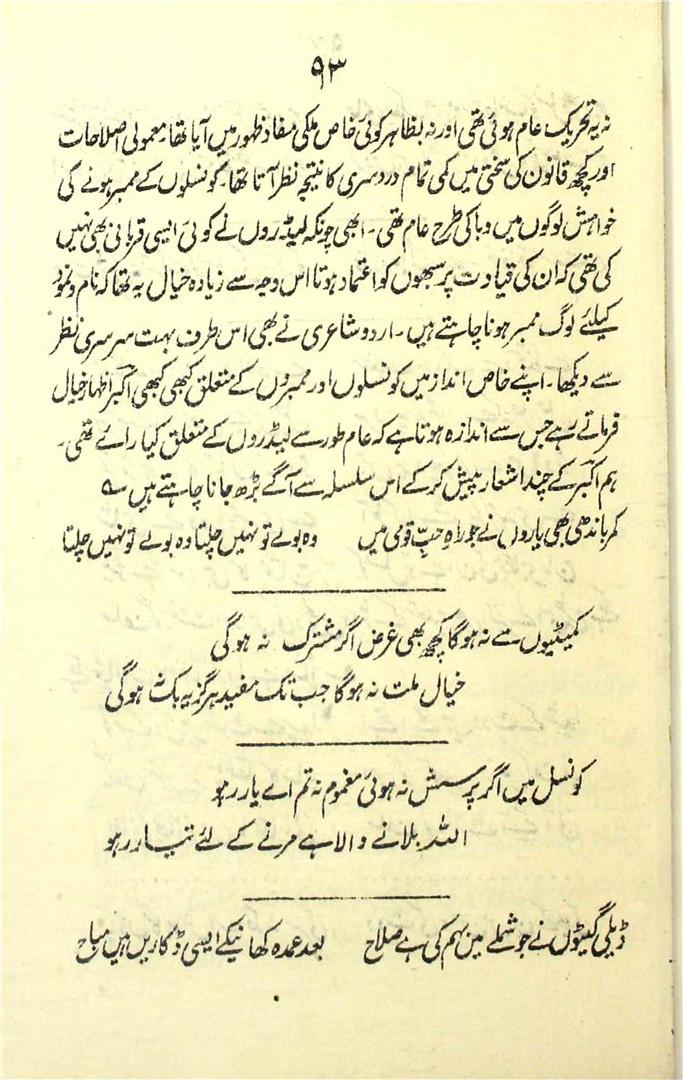 ۹۳
نہ یہ تحریک عام ہوئی تھی اور نہ بظاہر کوئی خاص ملکی مفاد ظہور میں آیا تھا۔ معمولی اصلاحات
اور کچھ قانون کی سختی میں کمی تمام دردسری کا نتیجہ نظر آتا تھا۔ کونسلوں کے ممبر ہونے کی
خواہش لوگوں میں وبا کی طرح عام تھی۔ ابھی چونکہ لیڈروں نے کوئی ایسی قربانی بھی نہیں
کی تھی کہ ان کی قیادت پر سبھوں کو اعتماد ہوتا اس وجہ سے زیادہ خیال یہ تھا کہ نام و نمود
کیلئے لوگ ممبر ہونا چاہتے ہیں۔ اردو شاعری نے بھی اس طرف بہت سرسری نظر
سے دیکھا۔ اپنے خاص انداز میں کونسلوں اور ممبروں کے متعلق کبھی کبھی اکبر اظہار خیال
فرماتے رہے جس سے اندازہ ہوتا ہے کہ عام طور سے لیڈروں کے متعلق کیا رائے تھی۔
ہم اکبر کے چند اشعار پیش کر کے اس سلسلہ سے آگے بڑھ جانا چاہتے ہیں ؎
کمر باندھی بھی یاروں نے جو راہِ حبِّ قومی میں وہ بولے تو نہیں چلتا وہ بولے تو نہیں چلتا
کمیٹیوں سے نہ ہوگا کچھ بھی غرض اگر مشترک نہ ہوگی
خیال ملت نہ ہوگا جب تک مفید ہرگز یہ بک نہ ہوگی
کونسل میں اگر پرسش نہ ہوئی مغموم نہ تم اے یار رہو
اللہ بلانے والا ہے مرنے کے لئے تیار رہو
ڈیلی گیٹوں نے جو شملے میں بہم کی ہے صلاح بعد عمدہ کھانیکے ایسی ڈکاریں ہیں مباح